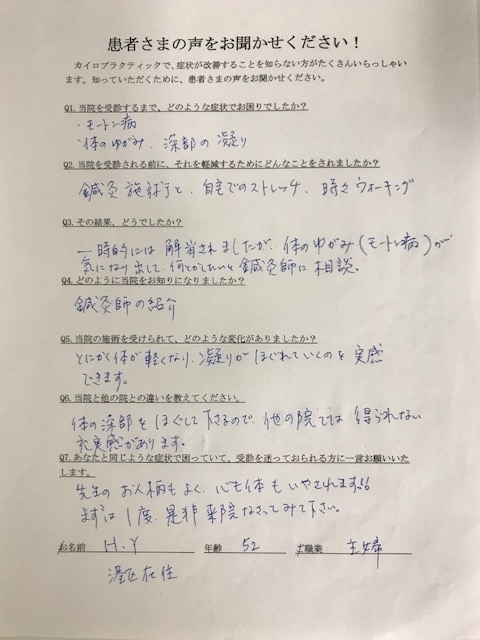 患者さまの声をお聞かせください！
カイロプラクティックで、症状が改善することを知らない方がたくさんいらっしゃい
ます。知っていただくために、患者さまの声をお聞かせください。
Q1. 当院を受診するまで、どのような症状でお困りでしたか？
・モートン病
・体のゆがみ、深部の凝り
Q2. 当院を受診される前に、それを軽減するためにどんなことをされましたか？
鍼灸施術と、自宅でのストレッチ、時々ウォーキング
Q3. その結果、どうでしたか？
一時的には解消されましたが、体のゆがみ(モートン病)が
気になり出して、何とかしたいと鍼灸師に相談。
Q4. どのように当院をお知りになりましたか？
鍼灸師の紹介
Q5. 当院の施術を受けられて、どのような変化がありましたか？
とにかく体が軽くなり、凝りがほぐれていくのを実感
できます。
Q6. 当院と他の院との違いを教えてください。
体の深部をほぐして下さるので、他の院では得られない
充実感があります。
Q7. あなたと同じような症状で困っていて、受診を迷っておられる方に一言お願いいた
します。
先生のお人柄もよく、心も体もいやされます!!
まずは1度、是非来院なさってみて下さい。
お名前 H.Y 年齢 52 ご職業 主婦
港区在住